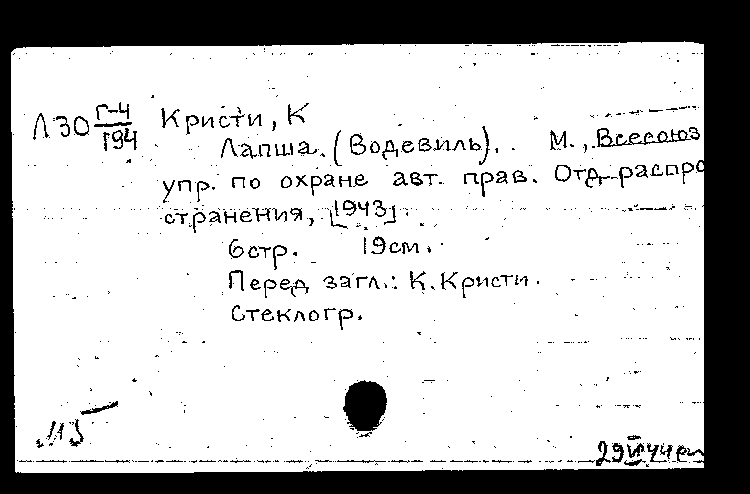 Л30 Г-4/194 Кристи, К
Лапша. (Водевиль). М., Всесоюз
упр. по охране авт. прав. Отд. распро
странения, [1943].
6стр. 19см.
Перед загл.: К. Кристи.
Стеклогр.
29 VI 44